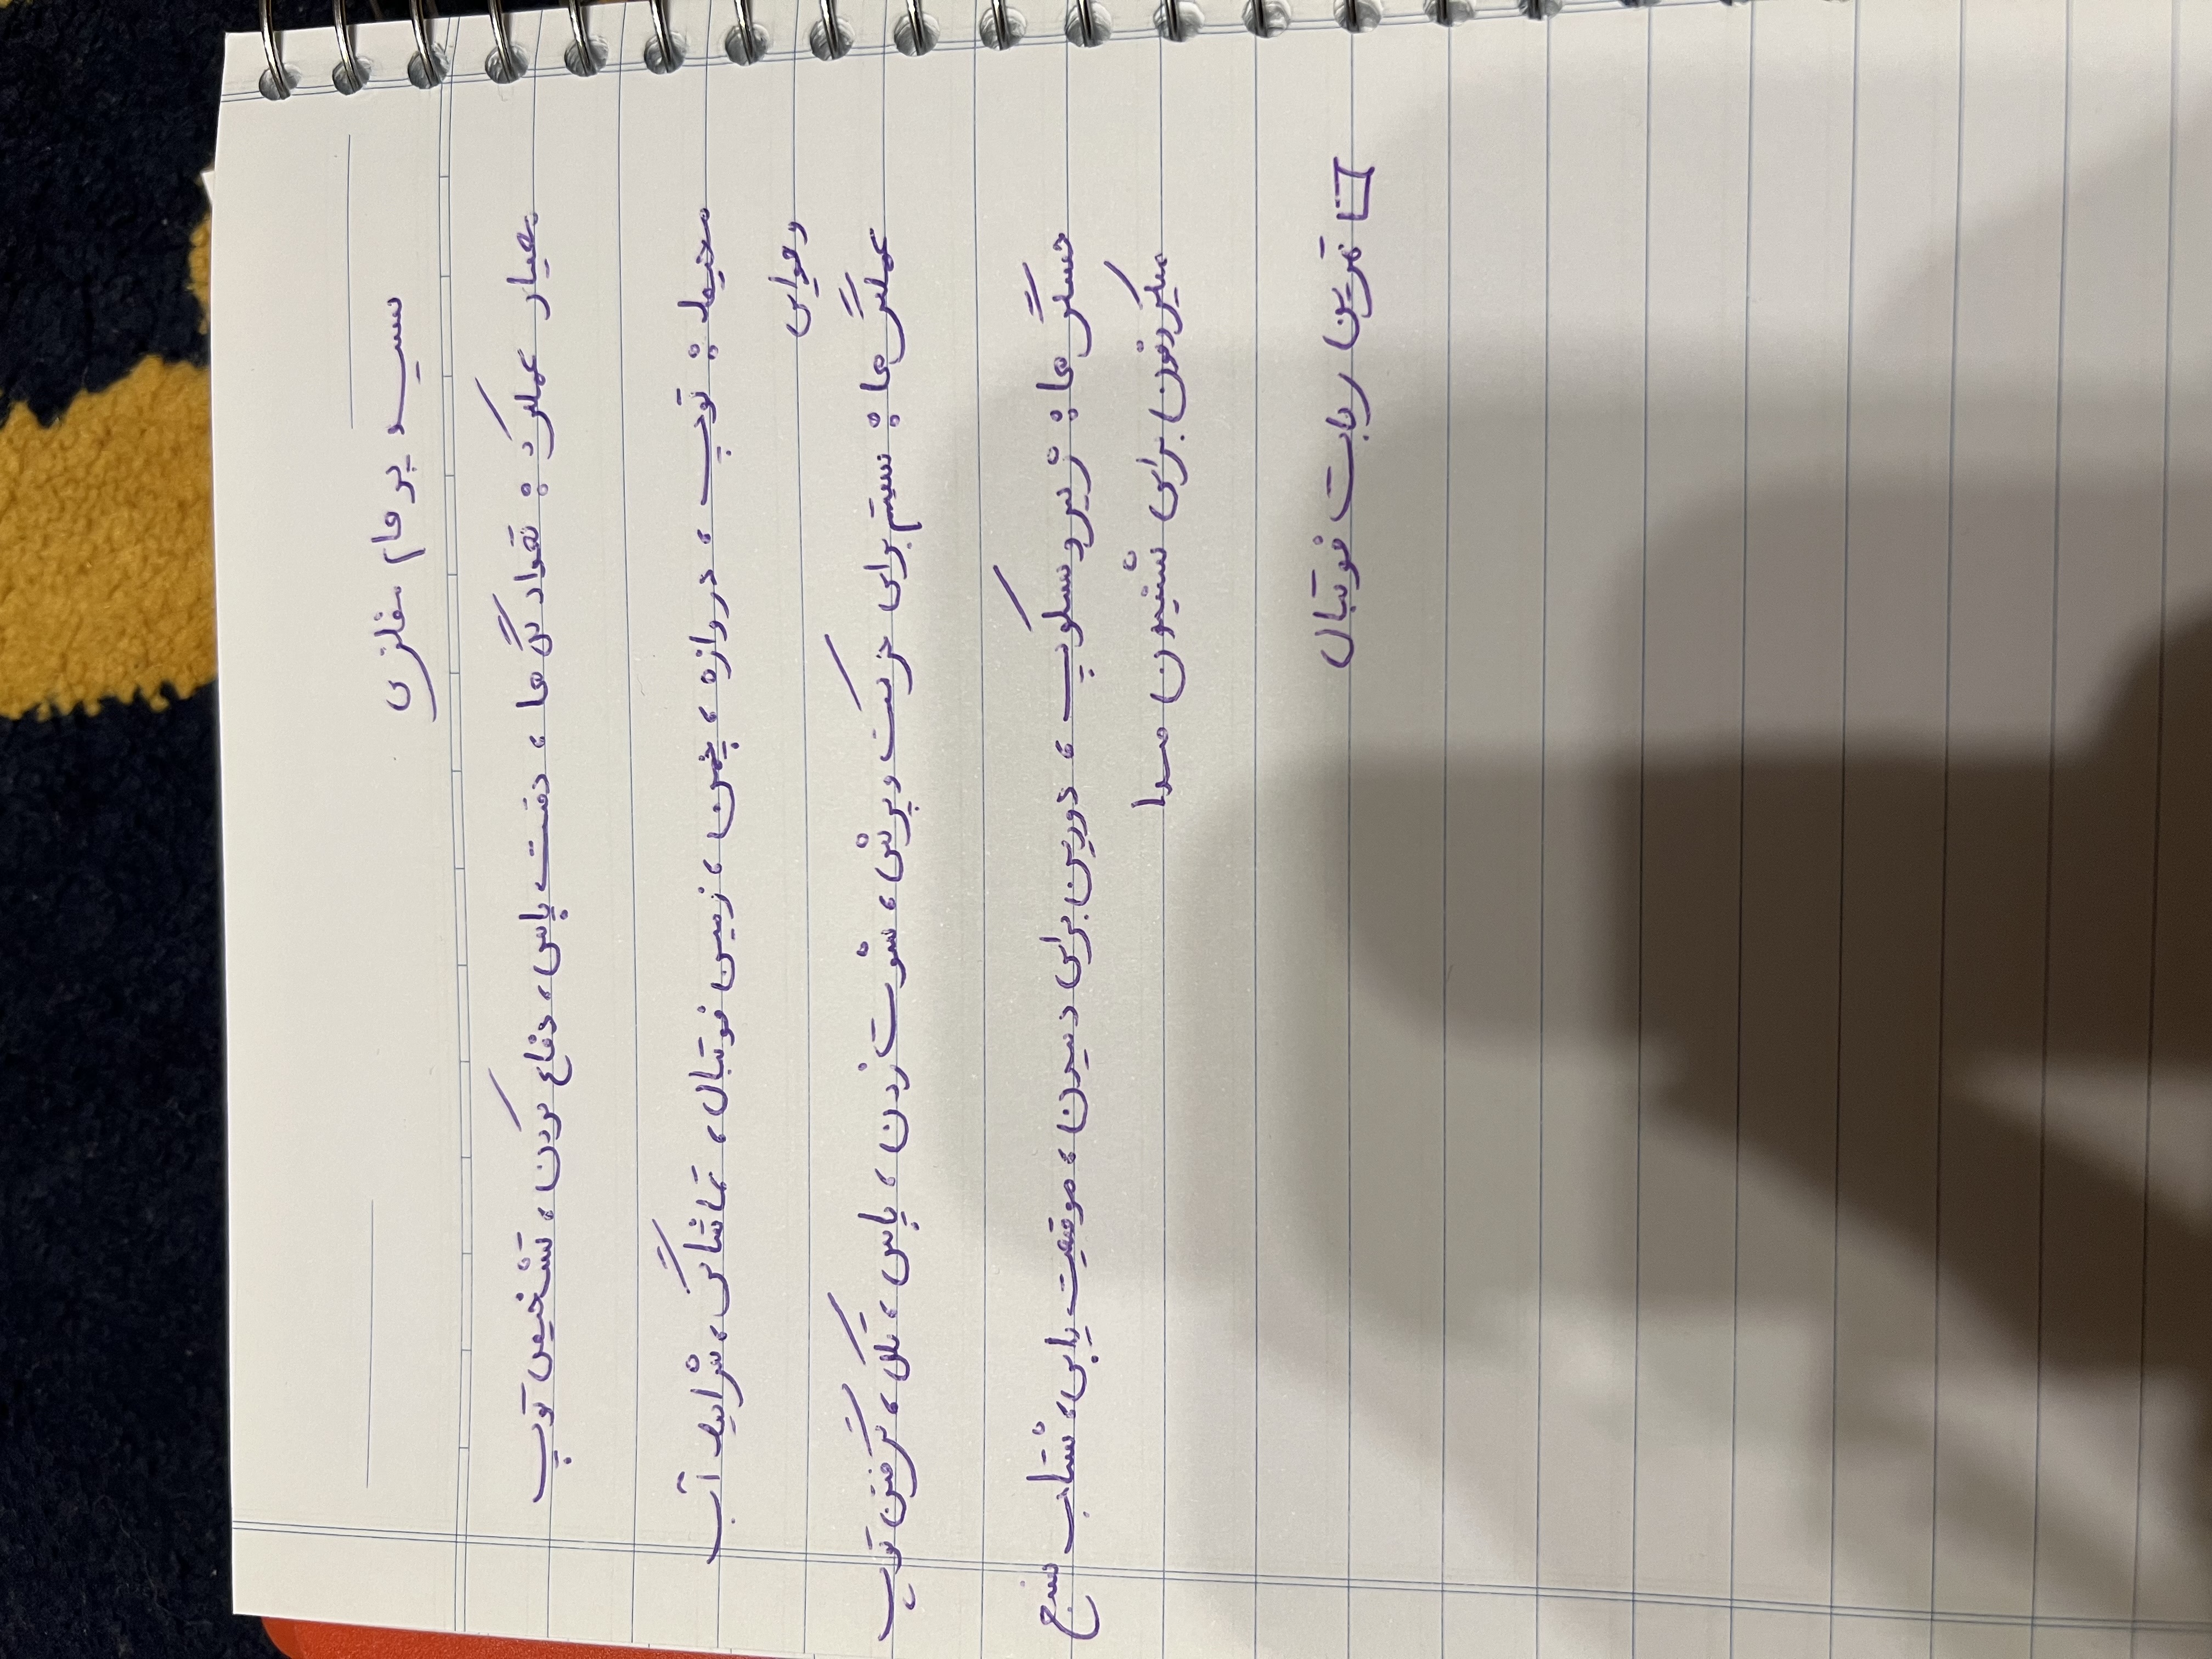 سید پرهام مغلزی
معیار عملکرد: تعداد گل ها، دقت پاس، دفاع کردن، تشخیص توپ
محیط: توپ، دروازه، چمن، زمین فوتبال، تماشاگر، شرایط آب
و هوایی
عملگر ها: سیستم برای حرکت و پرش، شوت زدن، پاس، تکل، گرفتن توپ
حسگر ها: ژیروسکوپ، دوربین برای دیدن، موقعیت یابی، شتاب سنج
میکروفون برای شنیدن صدا
تمرین ربات فوتبال